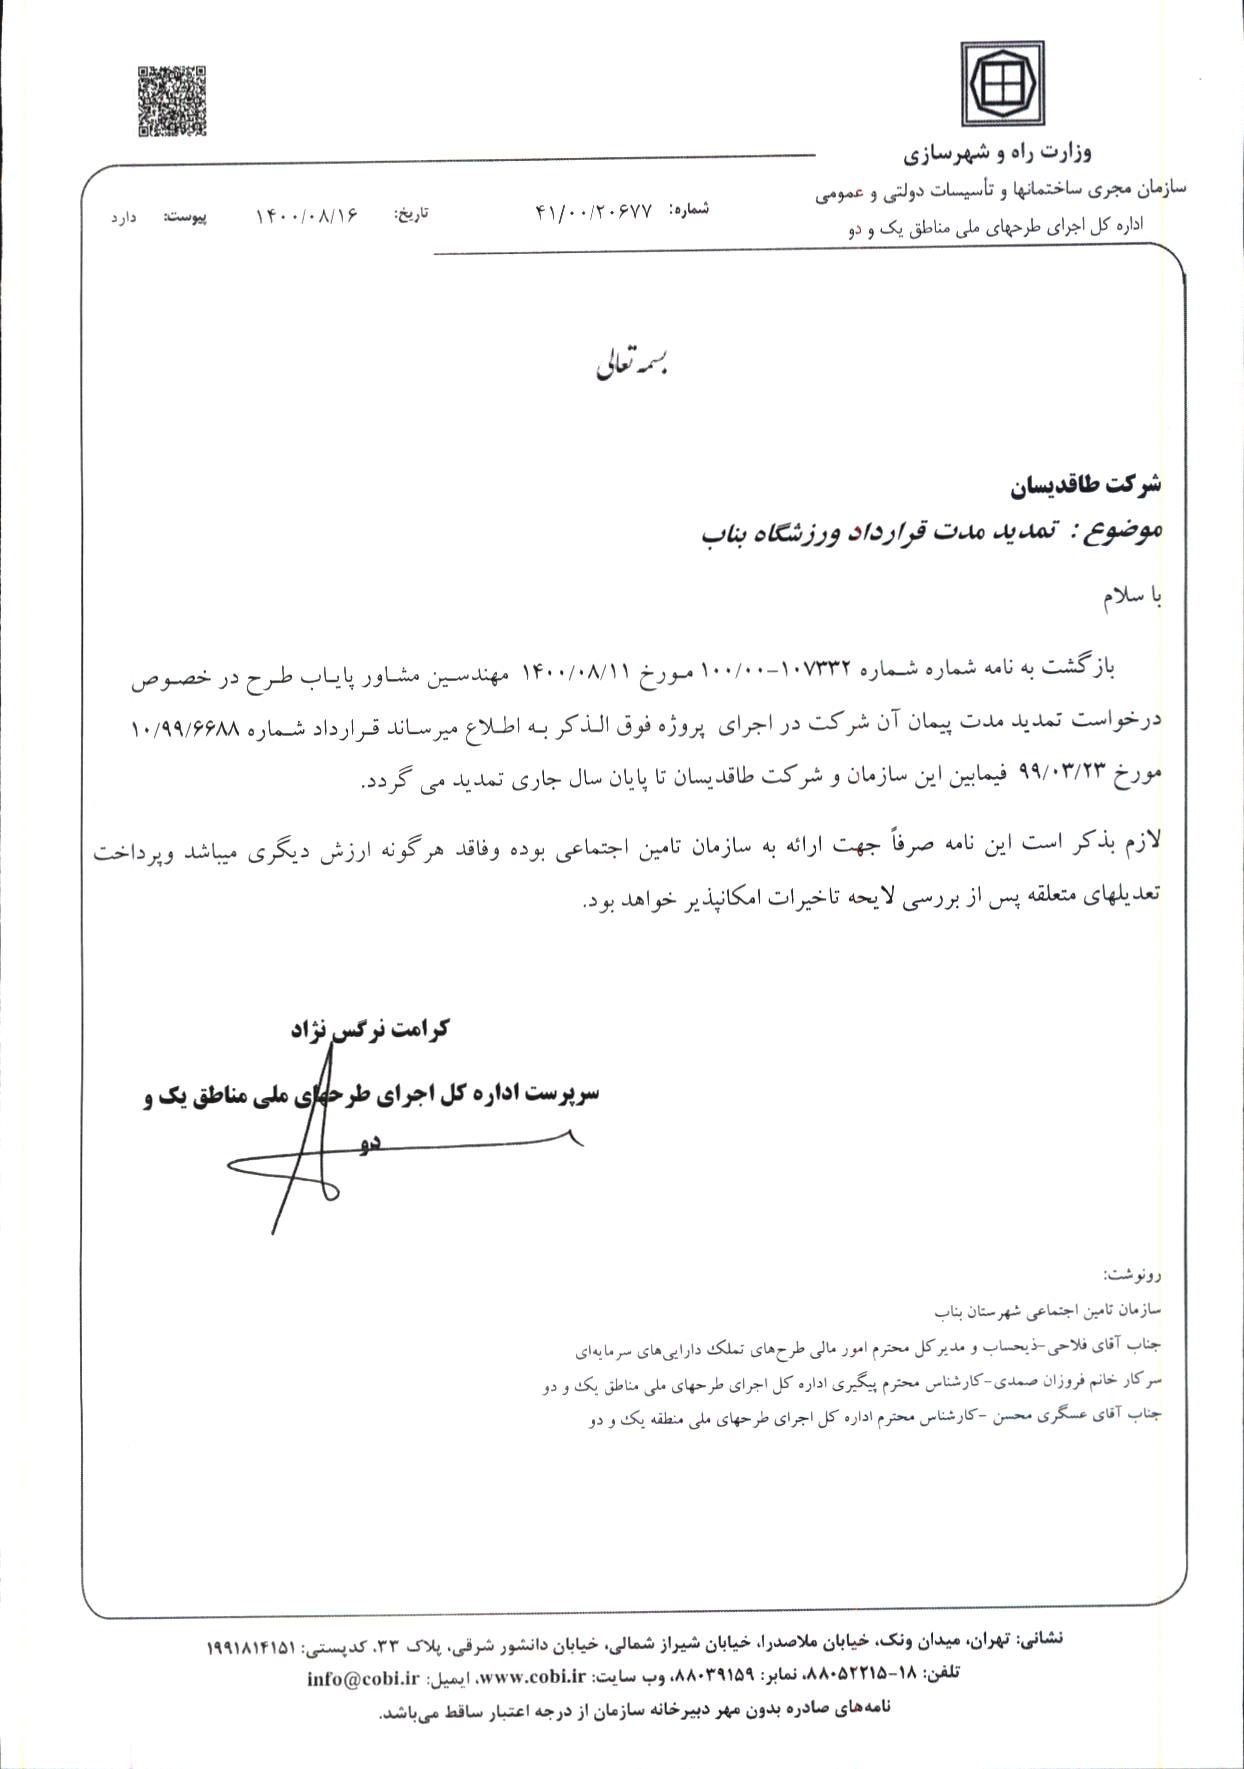 وزارت راه و شهرسازی
سازمان مجری ساختمانها و تأسیسات دولتی و عمومی
اداره کل اجرای طرحهای ملی مناطق یک و دو
شماره: ۴۱/۰۰/۲۰۶۷۷
تاریخ: ۱۴۰۰/۰۸/۱۶
پیوست: دارد
بسمه تعالی
شرکت طاقدیسان
موضوع : تمدید مدت قرارداد ورزشگاه بناب
با سلام
بازگشت به نامه شماره شماره ۱۰۷۳۳۲-۱۰۰/۰۰ مورخ ۱۴۰۰/۰۸/۱۱ مهندسین مشاور پایاب طرح در خصوص
درخواست تمدید مدت پیمان آن شرکت در اجرای پروژه فوق الذکر به اطلاع میرساند قرارداد شماره ۱۰/۹۹/۶۶۸۸
مورخ ۹۹/۰۳/۲۳ فیمابین این سازمان و شرکت طاقدیسان تا پایان سال جاری تمدید می گردد.
لازم بذکر است این نامه صرفاً جهت ارائه به سازمان تامین اجتماعی بوده وفاقد هرگونه ارزش دیگری میباشد وپرداخت
تعدیلهای متعلقه پس از بررسی لایحه تاخیرات امکانپذیر خواهد بود.
کرامت نرگس نژاد
سرپرست اداره کل اجرای طرحهای ملی مناطق یک و
دو
رونوشت:
سازمان تامین اجتماعی شهرستان بناب
جناب آقای فلاحی-ذیحساب و مدیرکل محترم امور مالی طرح‌های تملک دارایی‌های سرمایه‌ای
سرکار خانم فروزان صمدی-کارشناس محترم پیگیری اداره کل اجرای طرحهای ملی مناطق یک و دو
جناب آقای عسگری محسن -کارشناس محترم اداره کل اجرای طرحهای ملی منطقه یک و دو
نشانی: تهران، میدان ونک، خیابان ملاصدرا، خیابان شیراز شمالی، خیابان دانشور شرقی، پلاک ۳۳، کدپستی: ۱۹۹۱۸۱۴۱۵۱
تلفن: ۱۸-۸۸۰۵۲۲۱۵، نمابر: ۸۸۰۳۹۱۵۹، وب سایت: www.cobi.ir، ایمیل: info@cobi.ir
نامه‌های صادره بدون مهر دبیرخانه سازمان از درجه اعتبار ساقط می‌باشد.